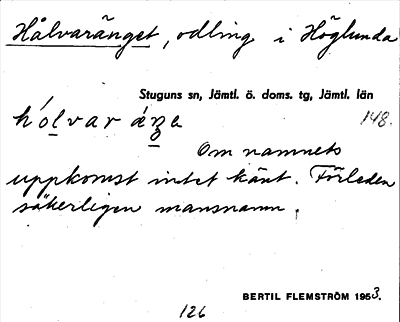 Hålvaränget, odling i Höglunda
Stuguns sn, Jämtl. ö. doms. tg, Jämtl. län
148.
Om namnets
uppkomst intet känt. Förleden
säkerligen mansnamn.
BERTIL FLEMSTRÖM 1953.
126